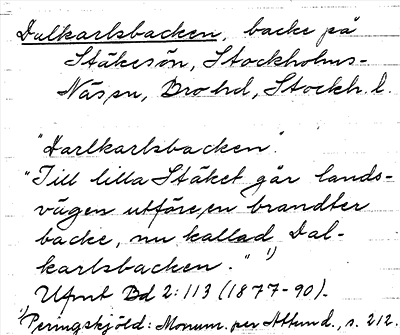 Dalkarlsbacken, backe på
Stäkesön, Stockholms-
Näs sn, Bro hd, Stockh. l.
"Darlkarlsbacken".
"Till lilla Stäket går lands-
vägen utföre en brandter
backe, nu kallad Dal-
karlsbacken." 1)
Ufmt Bd 2:113 (1877-90).
1) Peringskjöld: Monum. per Attund., s. 212.